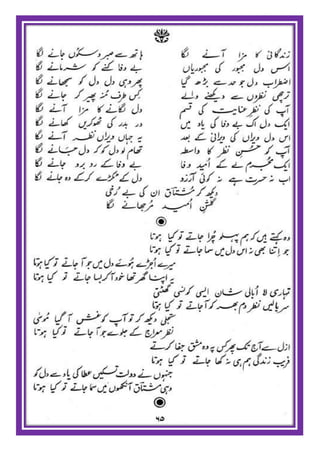 زندگانی کا مزا آنے لگا
ہاتھ سے صبر و سکوں جانے لگا
اس دل مجبور کی مجبوریاں
بے وفا کہنے کو شرمانے لگا
اضطراب دل جو حد سے بڑھ گیا
پھر وہی دل دل کو سمجھانے لگا
ترچھی نظروں سے دیکھنے والے
کس طرف منہ پھیر کر جانے لگا
آپ کی نظر عنایت کی قسم
دل لگانے کا مزا آنے لگا
ایک دل اک بے وفا کی یاد میں
در بدر کی ٹھوکریں کھانے لگا
اس دل ویراں کی ویرانی کے بعد
یہ جہاں ویراں نظر آنے لگا
آپ کو حسن نظر کا واسطہ
تھام لو دل کو کہ دل جانے لگا
ایک مجرم لے کے امید وفا
بے وفا کے رو برو جانے لگا
اب نہ حسرت ہے نہ کوئی آرزو
دل کے ٹکڑے کر کے وہ جانے لگا
دیکھ کر مشتاق ان کی بے رخی
گلشن امید مرجھانے لگا
وہ یہ کہتے ہیں کہ ہم پہلو چرا جاتے تو کیا ہوتا
جو اتنا بھی نہ اس دل میں سما جاتے تو کیا ہوتا
میرے اجڑے ہوئے دل میں جو آ جاتے تو کیا ہوتا
یہ اپنا گھر تھا خود آ کر بسا جاتے تو کیا ہوتا
تمہاری لا ابالی شان ایسی کونسی گھٹتی
سر بالیں نظر دم بھر کو آ جاتے تو کیا ہوتا
تجلی دیکھ کر تو آپ کو غش آ گیا موسیٰ
نظر معراج کے جلوے جو آ جاتے تو کیا ہوتا
ازل سے آج تک پھر کس پہ وہ مشق جفا کرتے
فریب زندگی ہم ہی نہ کھا جاتے تو کیا ہوتا
جنہوں نے دولت تسکیں عطا کی یاد سے دل کو
وہی مشتاق آنکھوں میں سما جاتے تو کیا ہوتا
۶۵